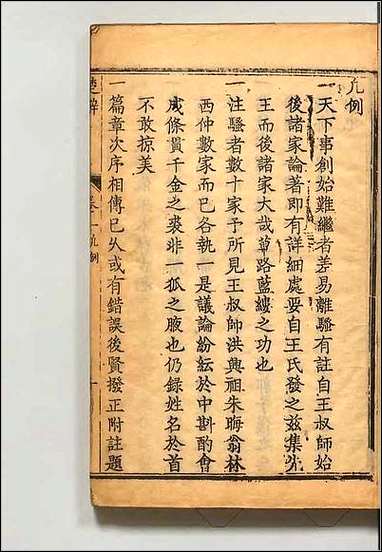 凡例
一天下事創始難繼者差易離騷有註自王叔師始
後諸家論著即有詳細處要自王氏發之茲集先
王而後諸家大哉蓽路藍縷之功也
一注騷者數十家予所見王叔師洪興祖朱晦翁林
西仲數家而已各執一是議論紛紜於中斟酌會
成條貫千金之裘非一狐之腋也仍錄姓名於首
不敢掠美
一篇章次序相傳已久或有錯誤後賢撥正附註題
楚辭
卷一凡例
一